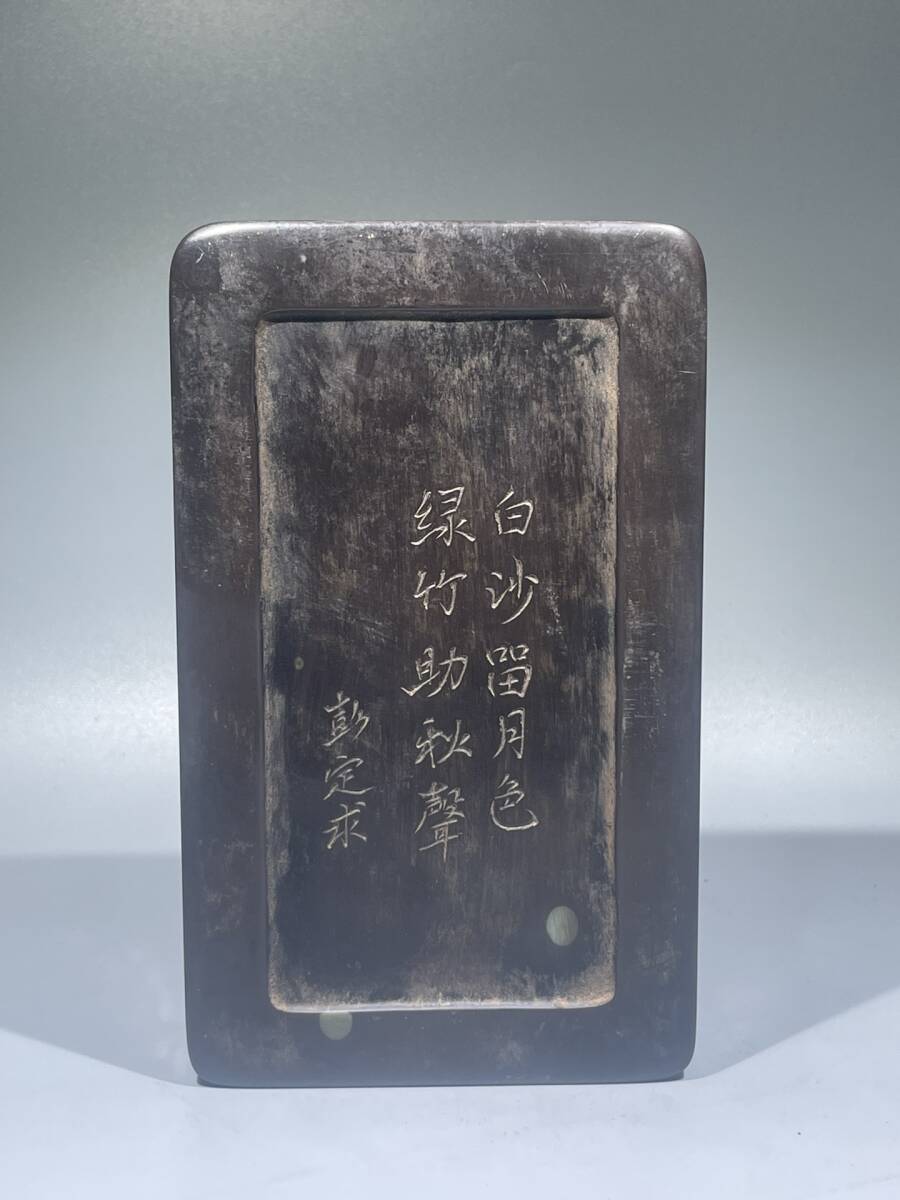 白沙畱月色
绿竹助秋聲
彭定求